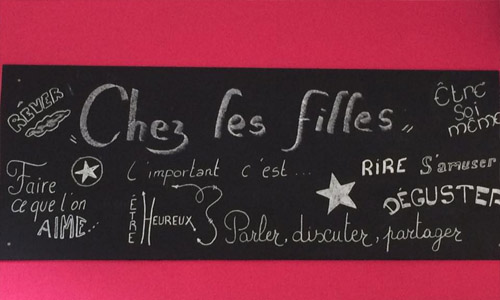 RÊVER
"Chez les filles"
Être
Soi
même
Faire
ce que l'on
AIME...
L'important c'est...
RIRE S'amuser
DÉGUSTER
ÊTRE HEUREUX
Parler, discuter, partager